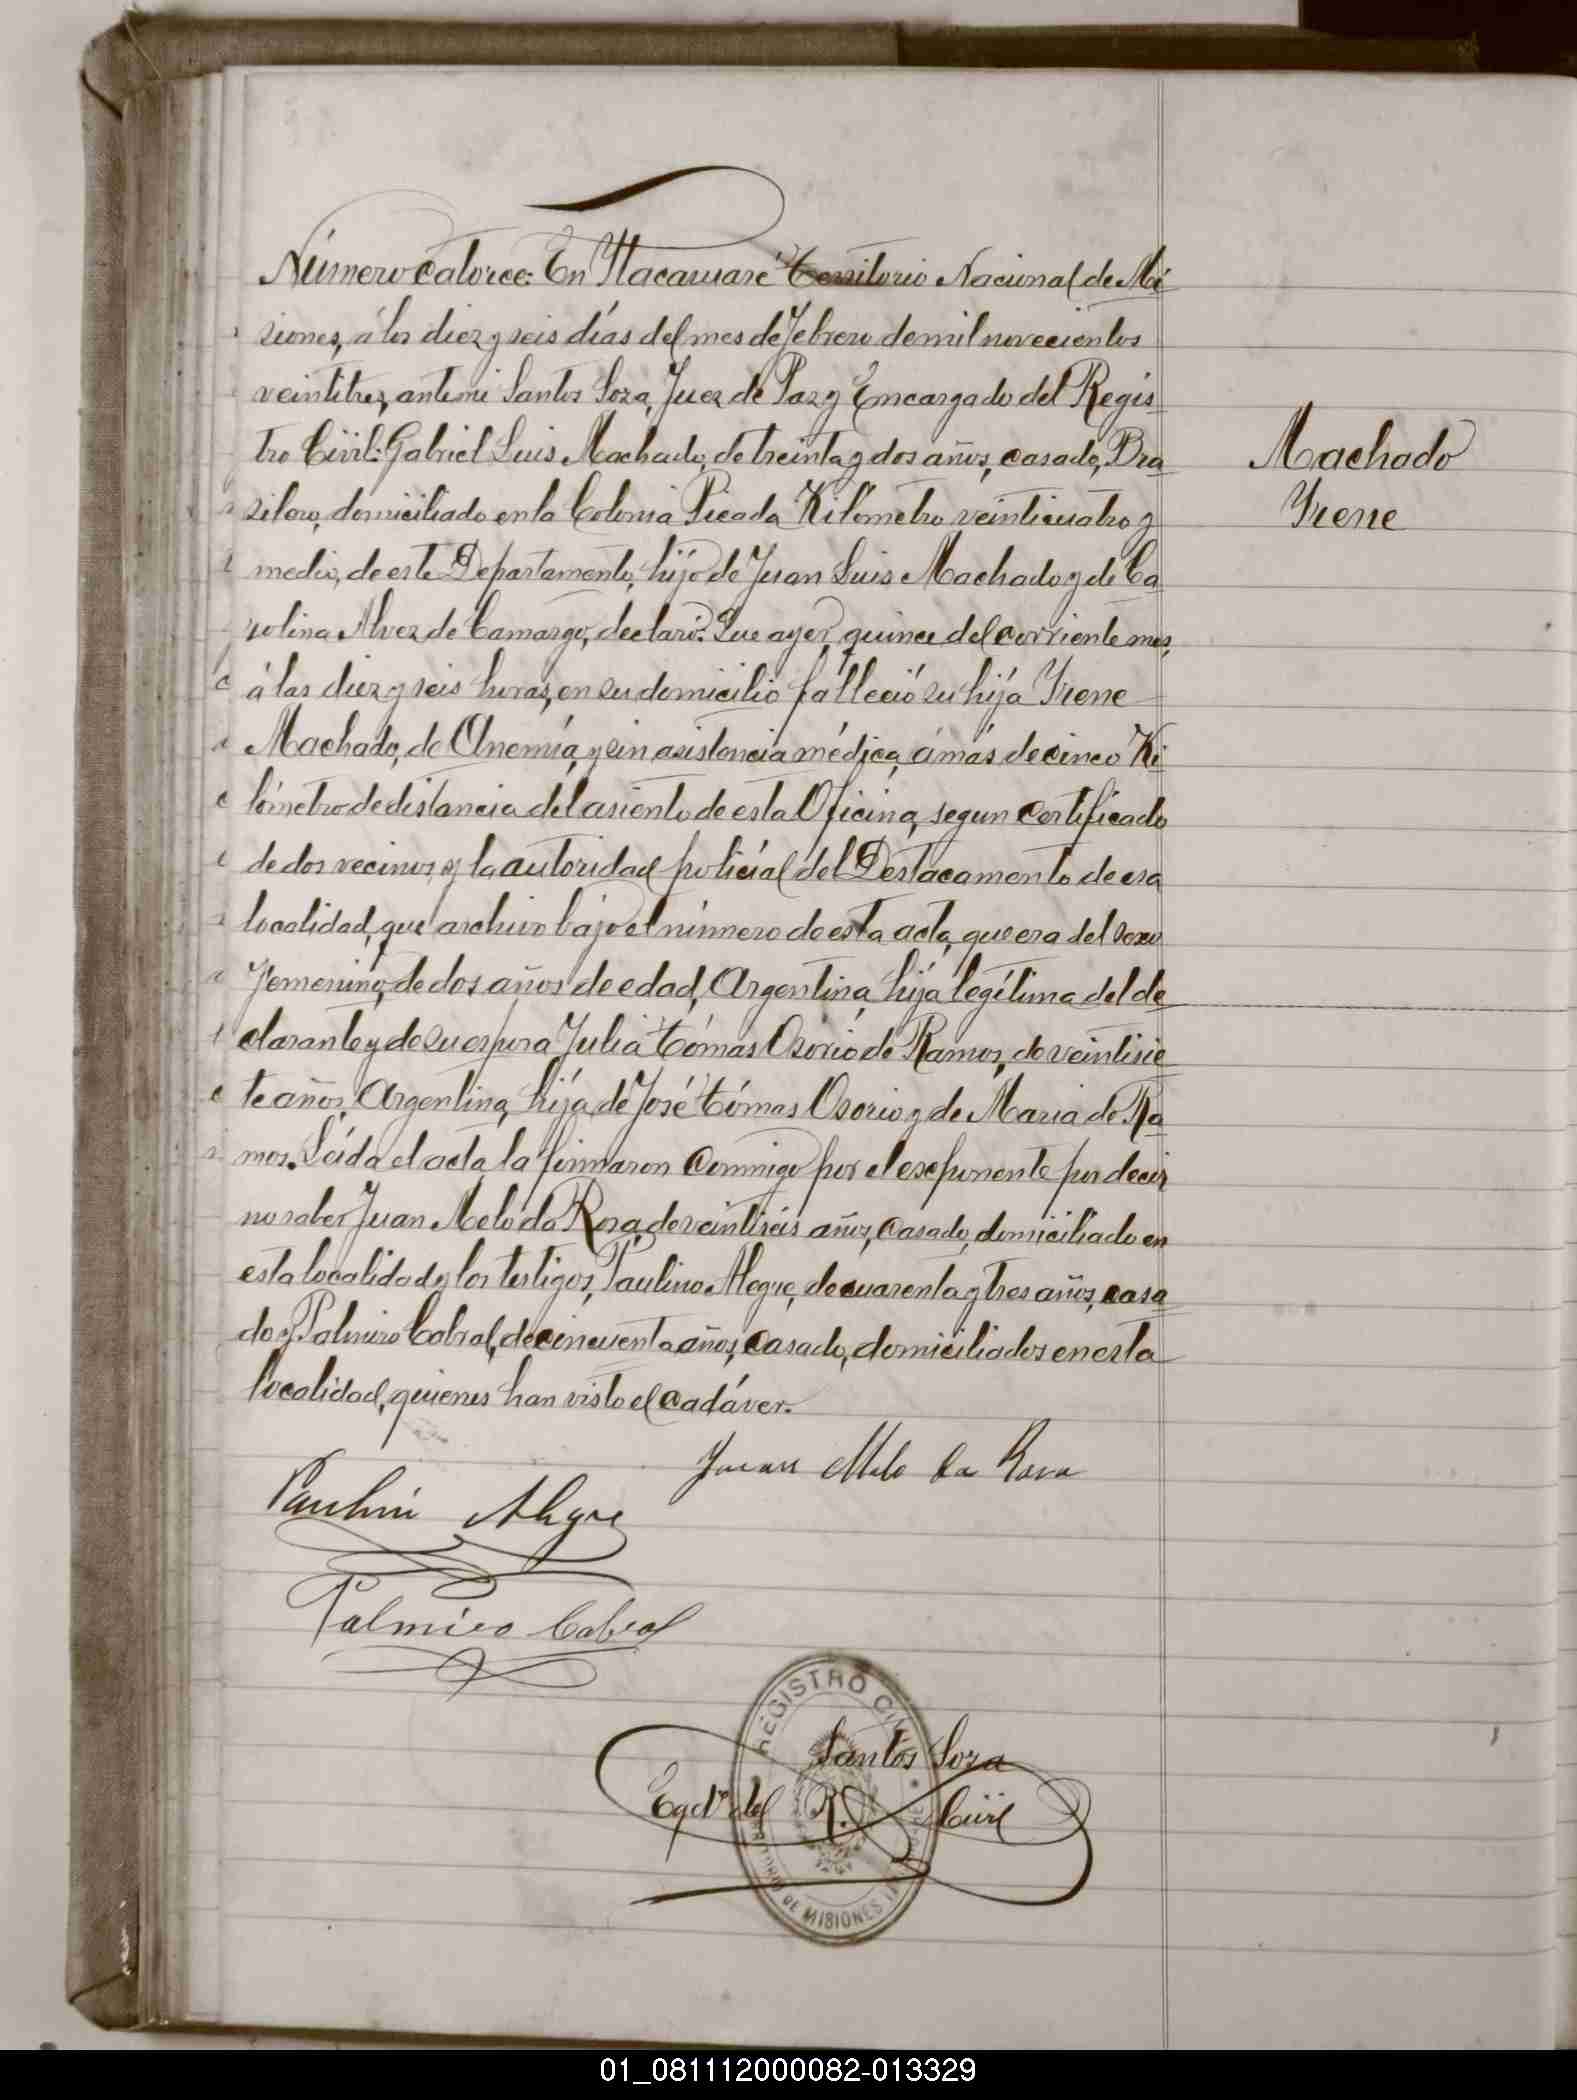 Número catorce: En Ytacaruaré Territorio Nacional de Mi
siones, á los diez y seis días del mes de Febrero de mil novecientos
veintitres, ante mi Santos Soza, Juez de Paz y Encargado del Regis
tro Civil: Gabriel Luis Machado, de treinta y dos años, casado, Bra
silero, domiciliado en la Colonia Picada Kilómetro veinticuatro y
medio, de este Departamento, hijo de Juan Luis Machado y de Ca
rolina Alvez de Camargo, declaró: Que ayer, quince del corriente mes,
á las diez y seis horas, en su domicilio fálleció su hija Yrene
Machado, de Anemía, y sin asistencia médica, á más de cinco Ki
lómetro de distancia del asiento de esta Oficina, segun certificado
de dos vecinos, y la autoridad policial del Destacamento de esa
localidad, que archivo bajo el número de esta acta, que era del sexo
Femenino, de dos años de edad, Argentina, hija legítima del de
clarante y de su esposa Julia Tómas Osorio de Ramos, de veintisie
te años, Argentina, hija de José Tómas Osorio y de Maria de Ra
mos. Leída el acta la firmaron conmigo por el exponente por decir
no saber Juan Melo da Rosa, de veintiseis años, casado, domiciliado en
esta localidad y los testigos, Paulino Alegre, de cuarenta y tres años, casa
do y Palmiro Cabral, de cincuenta años, casado, domiciliados en esta
localidad, quienes han visto el cadáver.
Machado
Yrene
Juan Melo da Rosa
Paulino Alegre
Palmiro Cabral
REGISTRO CIVIL
Santos Soza
Egdo del R. Civil
TERRITORIO DE MISIONES
01_081112000082-013329